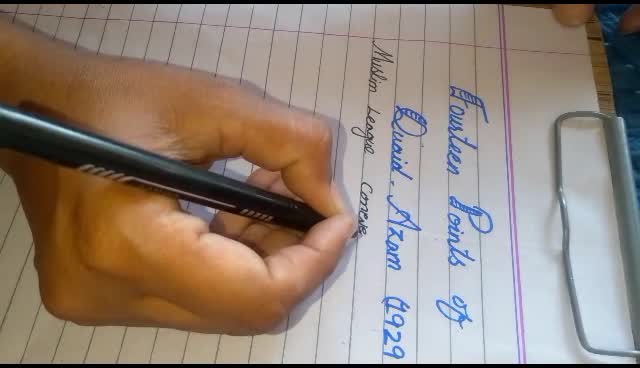 Fourteen Points of
Quaid-Azam (1929
Muslim League